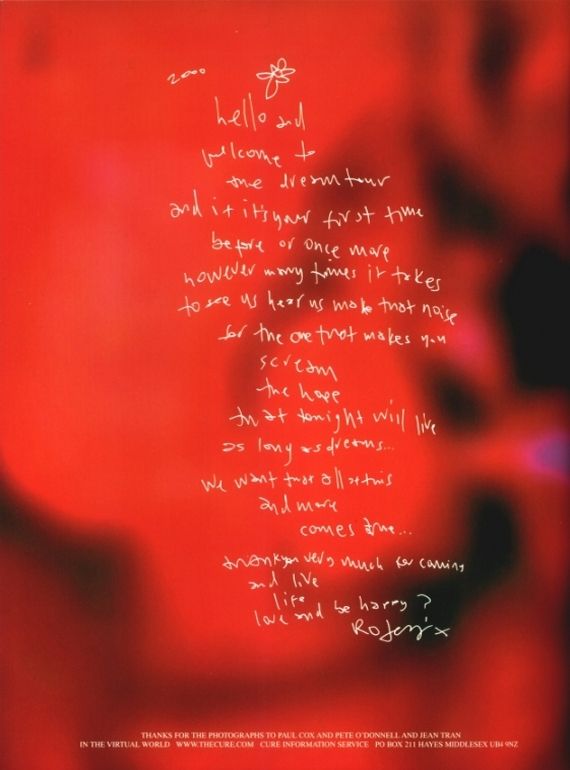 2000
hello and
welcome to
the dream tour
and if it's your first time
before or once more
however many times it takes
to see us hear us make that noise
for the one that makes you
scream
the hope
that tonight will live
as long as dreams...
we want that all of this
and more
comes true...
thankyou very much for coming
and live
life
love and be happy?
x
THANKS FOR THE PHOTOGRAPHS TO PAUL COX AND PETE O'DONNELL AND JEAN TRAN
IN THE VIRTUAL WORLD WWW.THECURE.COM CURE INFORMATION SERVICE PO BOX 211 HAYES MIDDLESEX UB4 9NZ